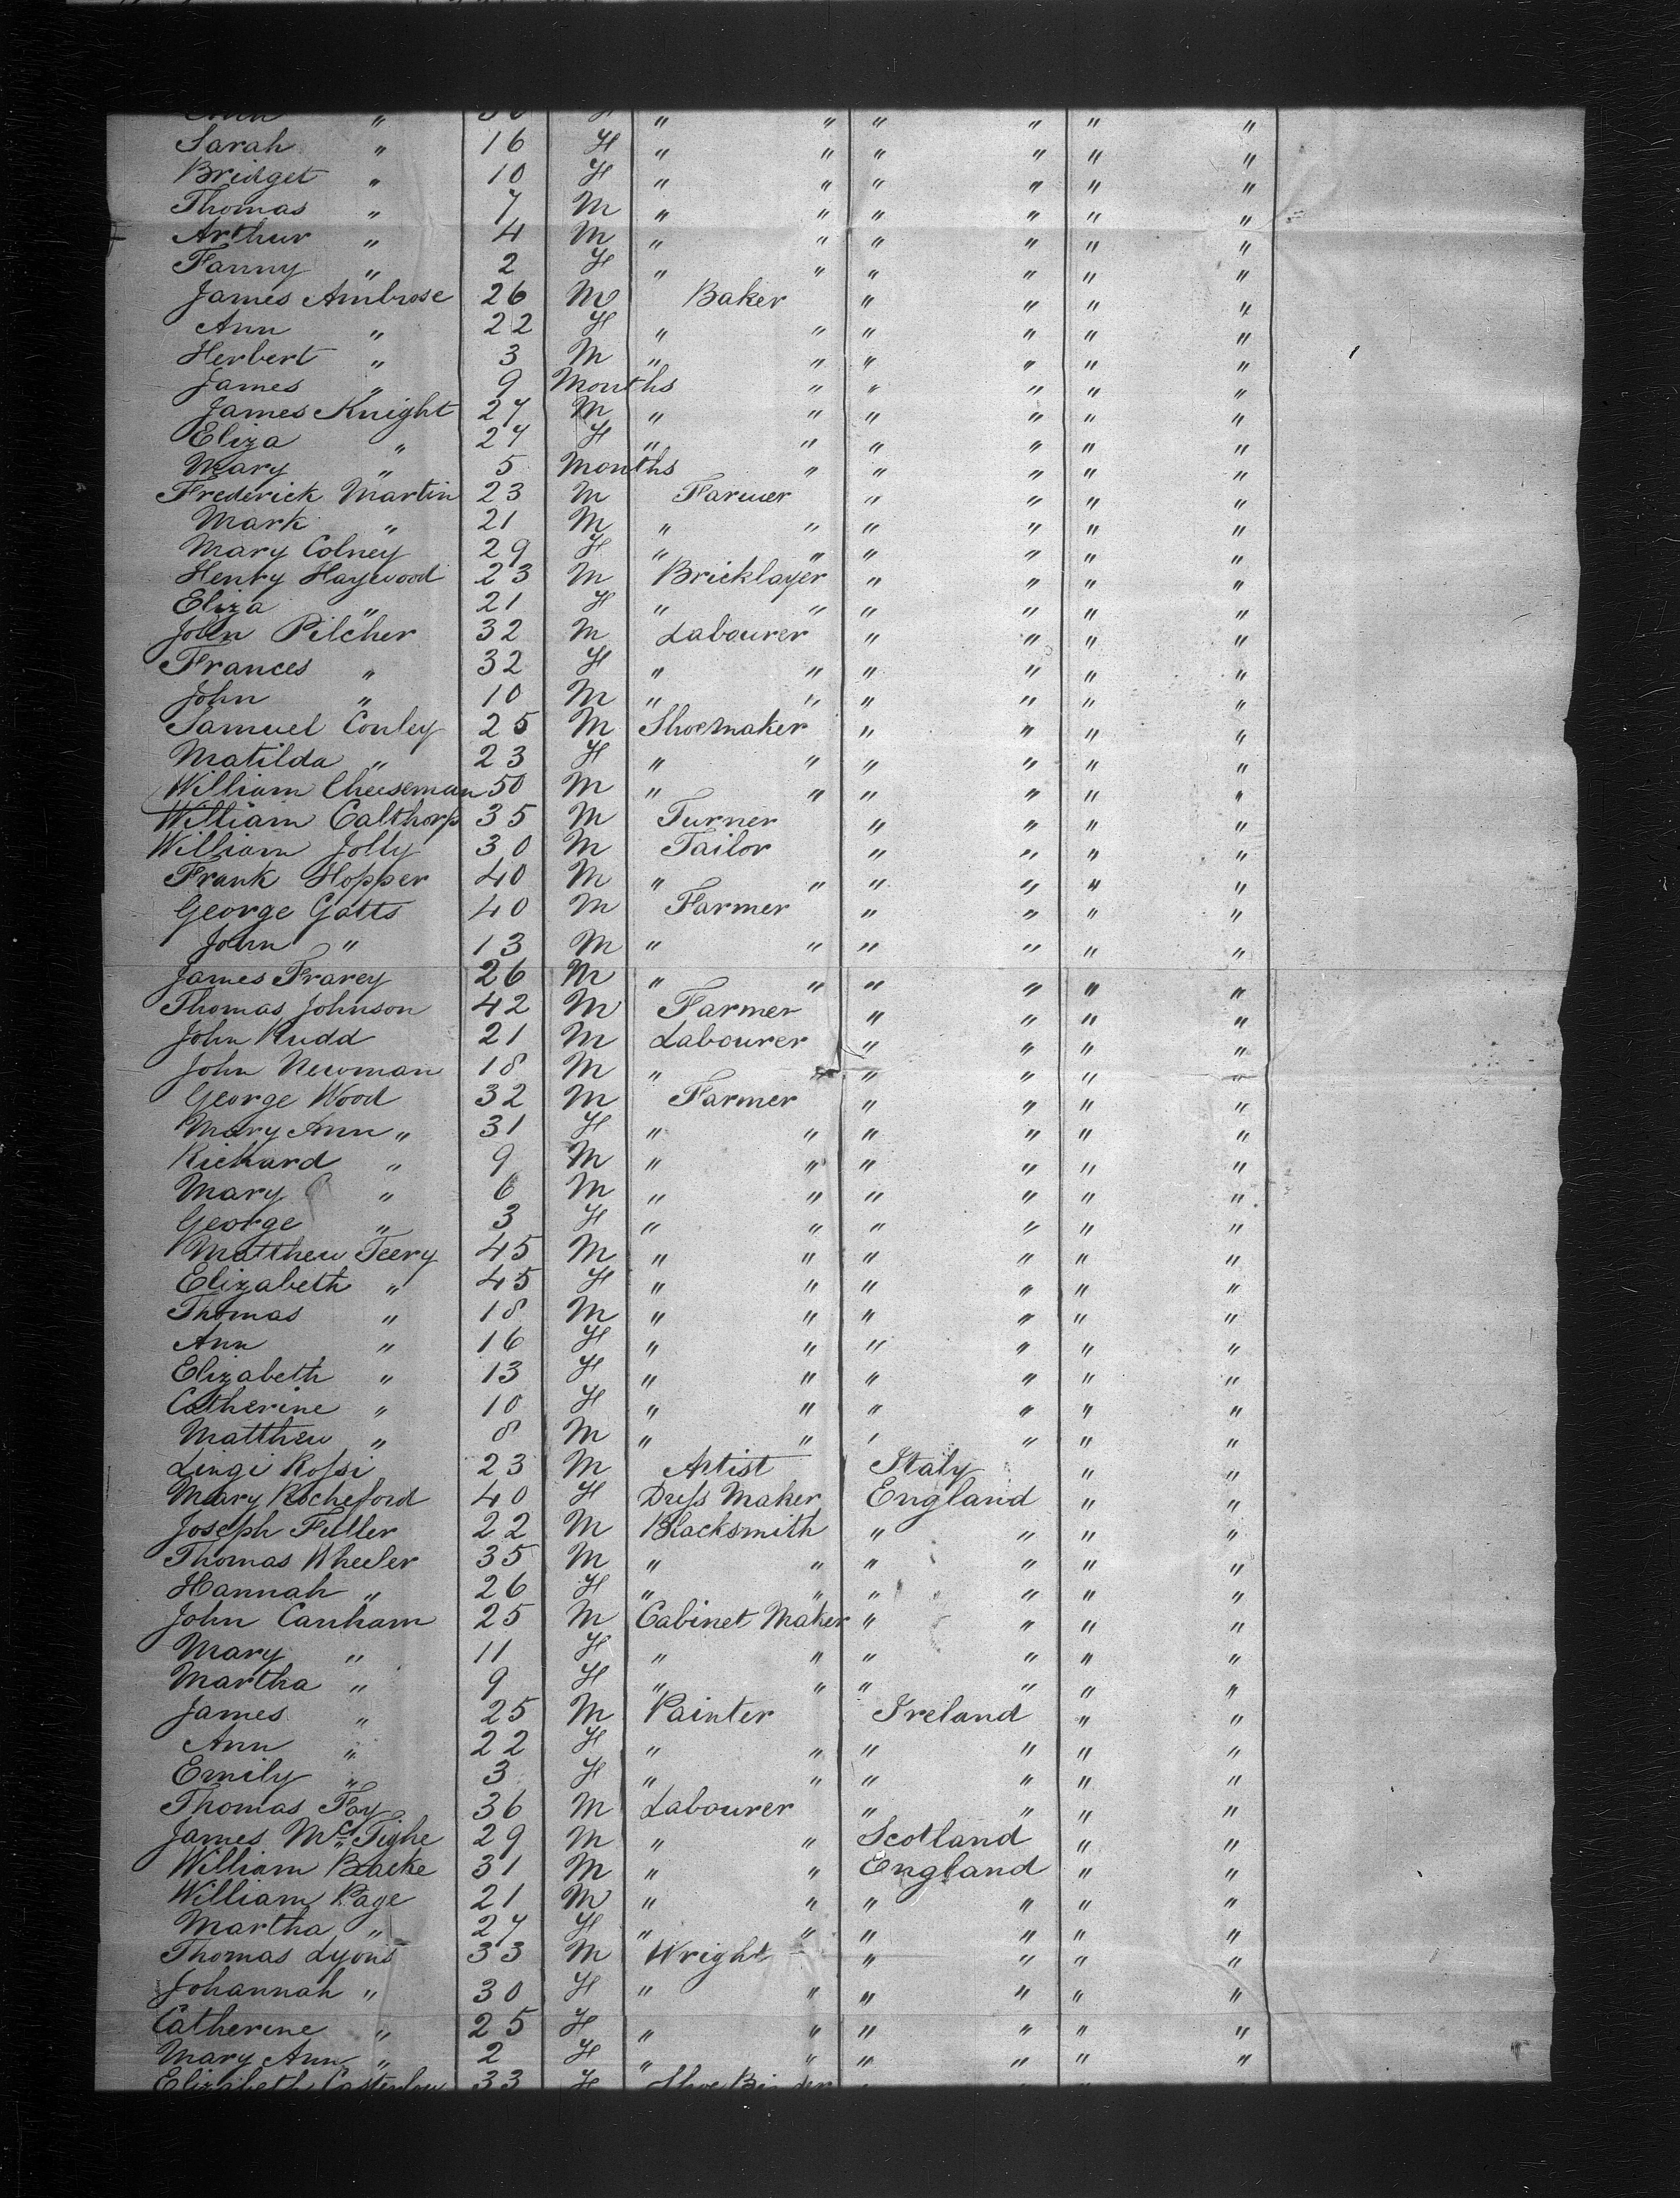 Ann " 30 H " " " " " "
Sarah " 16 H " " " " " "
Bridget " 10 H " " " " " "
Thomas " 7 M " " " " " "
Arthur " 4 M " " " " " "
Fanny " 2 H " " " " " "
James Ambrose 26 M Baker " " " "
Ann " 22 H " " " " " "
Herbert " 3 M " " " " " "
James " 9 Months " " " " "
James Knight 27 M " " " " " "
Eliza " 27 H " " " " " "
Mary " 5 Months " " " " "
Frederick Martin 23 M Farmer " " " "
Mark " 21 M " " " " " "
Mary Colney 29 H " " " " " "
Henry Haywood 23 M Bricklayer " " " "
Eliza " 21 H " " " " " "
John Pilcher 32 M Labourer " " " "
Frances " 32 H " " " " " "
John " 10 M " " " " " "
Samuel Conley 25 M Shoemaker " " " "
Matilda " 23 H " " " " " "
William Cheeseman 50 M " " " " " "
William Calthorp 35 M Turner " " " "
William Jolly 30 M Tailor " " " "
Frank Hopper 40 M " " " " " "
George Gatts 40 M Farmer " " " "
John " 13 M " " " " " "
James Frarey 26 M " " " " " "
Thomas Johnson 42 M Farmer " " " "
John Rudd 21 M Labourer " " " "
John Newman 18 M " " " " " "
George Wood 32 M Farmer " " " "
Mary Ann " 31 H " " " " " "
Richard " 9 M " " " " " "
Mary " 6 M " " " " " "
George " 3 H " " " " " "
Matthew Teery 45 M " " " " " "
Elizabeth " 45 H " " " " " "
Thomas " 18 M " " " " " "
Ann " 16 H " " " " " "
Elizabeth " 13 H " " " " " "
Catherine " 10 H " " " " " "
Matthew " 8 M " " " " " "
Lingi Rossi 23 M Artist Italy " "
Mary Rocheford 40 H Dress Maker England " "
Joseph Fuller 22 M Blacksmith " " " "
Thomas Wheeler 35 M " " " " " "
Hannah " 26 H " " " " " "
John Canham 25 M Cabinet Maker " " " "
Mary " 11 H " " " " " "
Martha " 9 H " " " " " "
James " 25 M Painter Ireland " "
Ann " 22 H " " " " " "
Emily " 3 H " " " " " "
Thomas Fay 36 M Labourer " " " "
James McTighe 29 M " " Scotland " "
William Backe 31 M " " England " "
William Page 21 M " " " " " "
Martha " 27 H " " " " " "
Thomas Lyons 33 M Wright " " " "
Johannah " 30 H " " " " " "
Catherine " 25 H " " " " " "
Mary Ann " 2 H " " " " " "
Elizabeth 33 H Shoe Binder